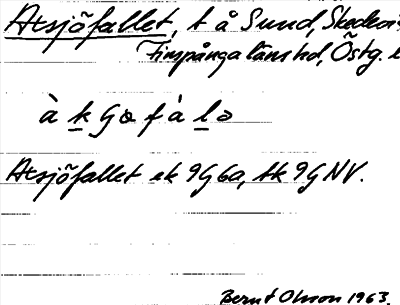 Atsjöfallet, t å Sund, Skedevi
Finspånga läns hd, Östg. l
à k G ɷ f á l ə
Atsjöfallet ek 9G6a, tk 9G NV.
Bernt Olsson 1963.